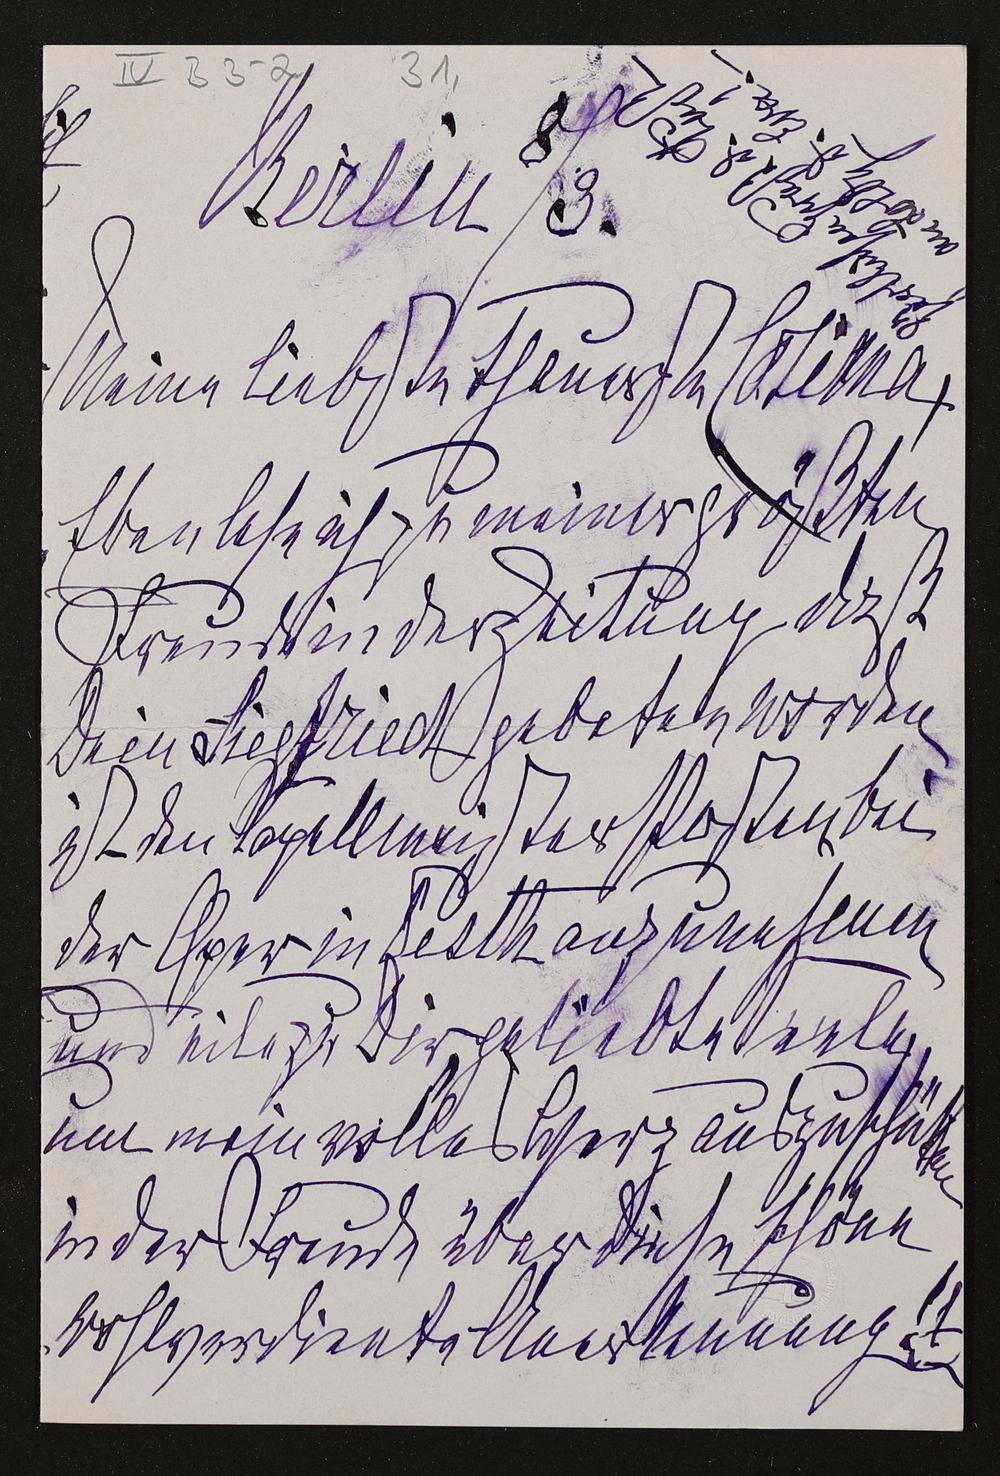 IV B 3-2 31,
Berlin 8/3.
Meine liebste theuerste Cosima,
Eben lese ich zu meiner größten
Freude in der Zeitung daß
Dein Siegfried gebeten worden
ist den Capellmeister Posten bei
der Oper in Pesth anzunehmen
und eile zu Dir geliebte Seele,
um mein volles Herz auszuschütten
in der Freude über diese schöne
wohlverdiente Anerkennung!